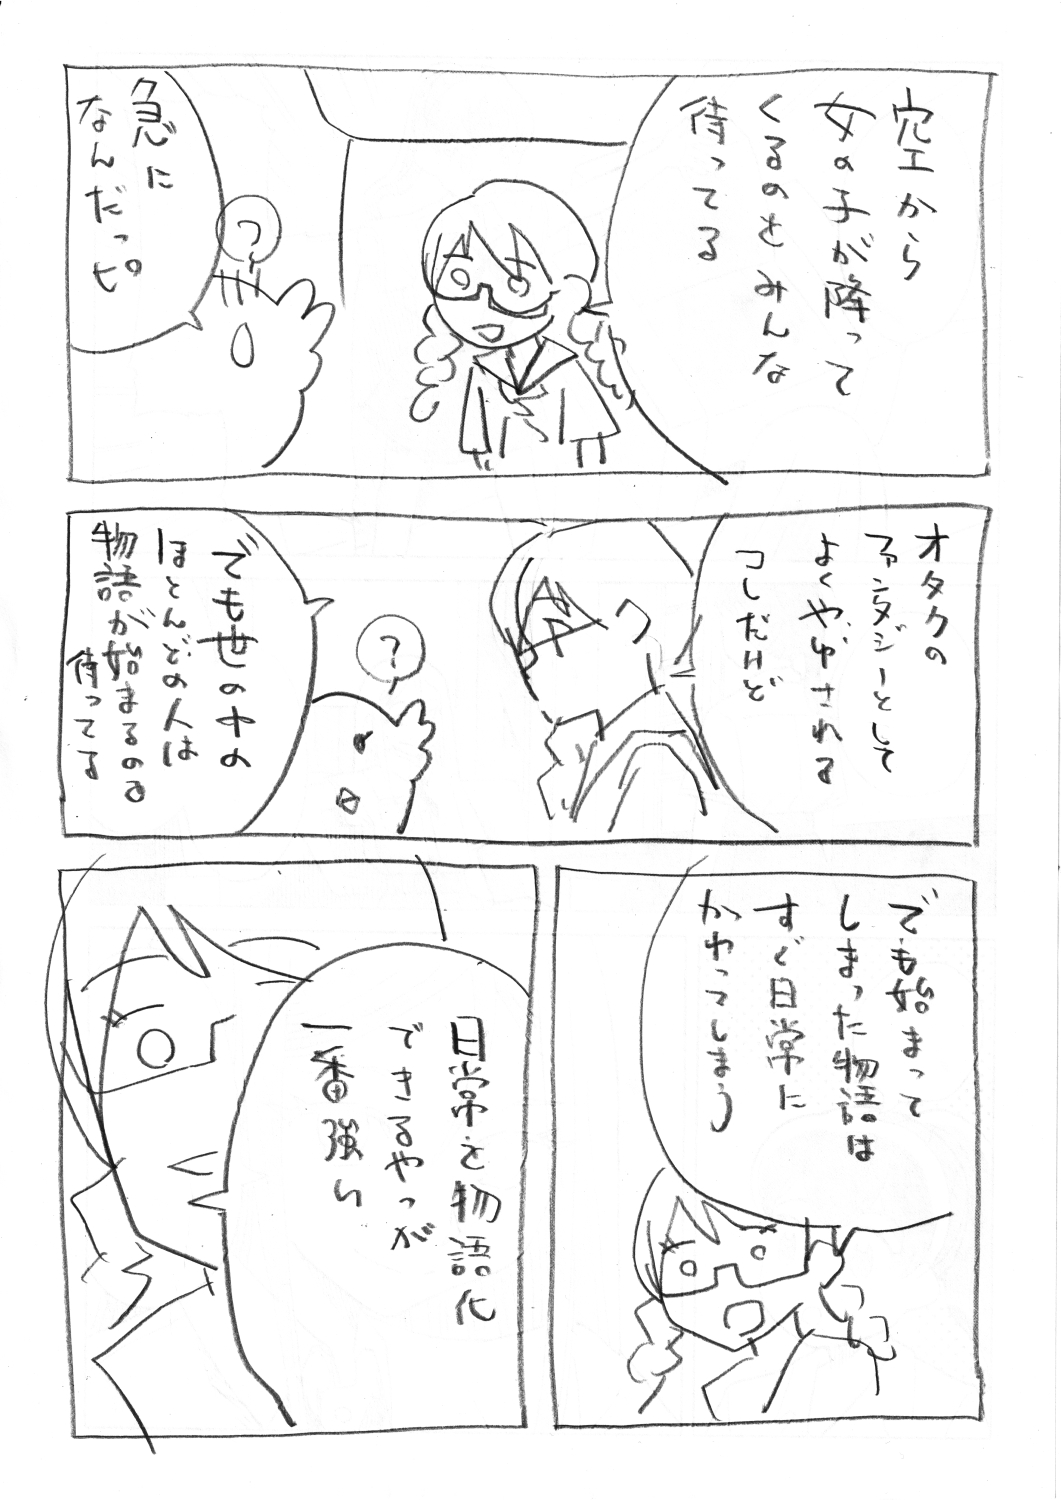 空から
女の子が降って
くるのをみんな
待ってる
?
急に
なんだっピ
オタクの
ファンタジーとして
よくやゆされる
コレだけど
?
でも世の中の
ほとんどの人は
物語が始まるのを
待ってる
でも始まって
しまった物語は
すぐ日常に
かわってしまう
日常を物語化
できるやつが
一番強い